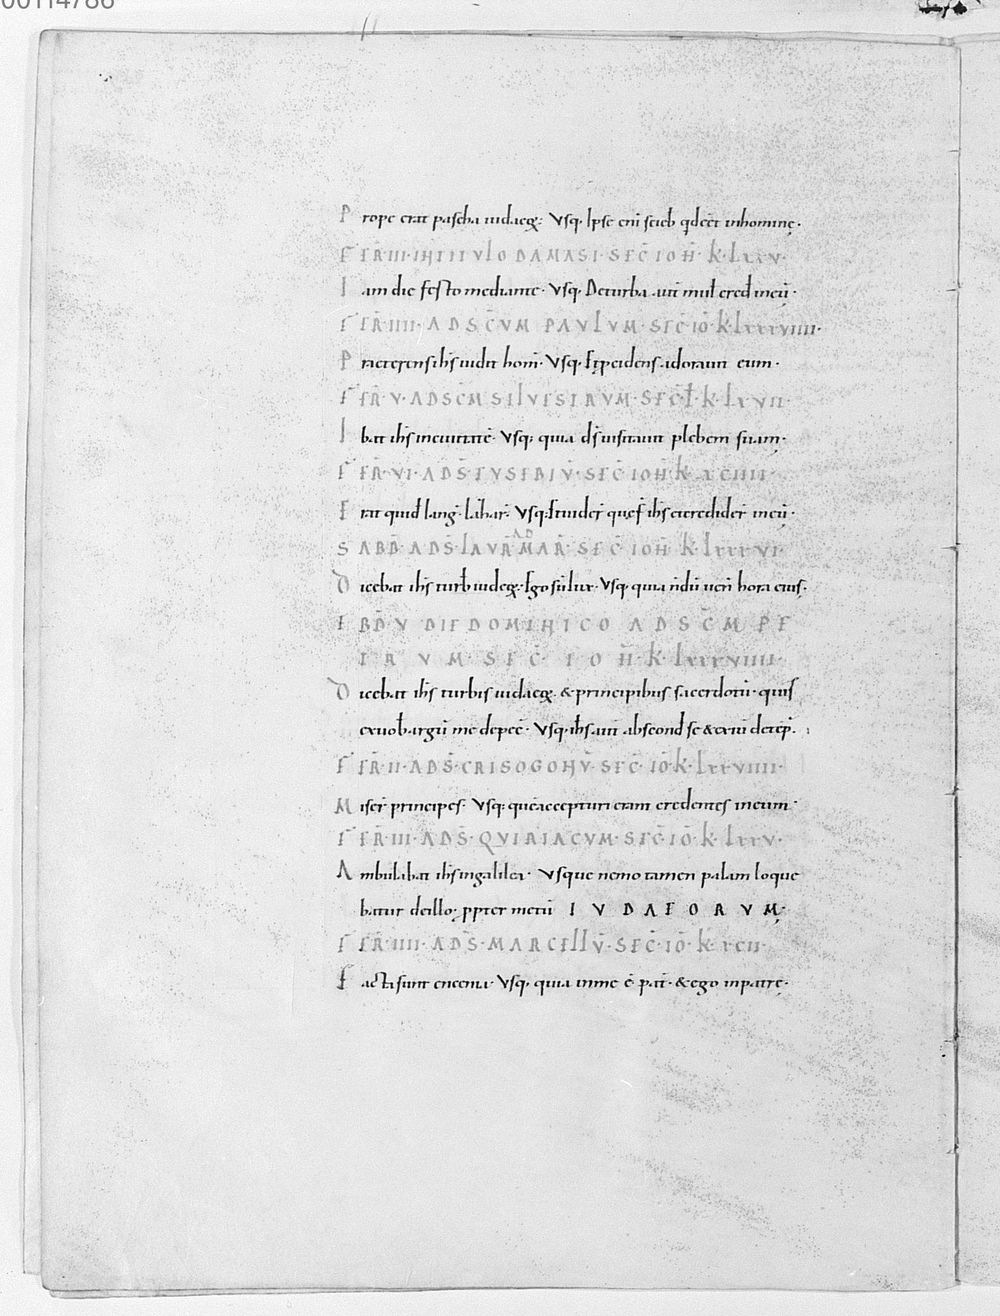 00114786
Prope erat pascha iudaeoꝝ: Vsq. Ipse eni̅ scieb̅ qd̅ eet̅ inhomine.
FER̅ III· IN TITVLO DAMASI· SEC̅ IOH̅· K· LXXV·
Iam die festo mediante· Vsq. De turba aut̅ mul̅ cred̅ ineu̅·
FER̅ IIII· AD SC̅VM PAVLVM· SEC̅ IO̅· K· LXXXVIIII·
Praeteriens ih̅s uidit hom̅· Vsq. Et pcidens adorauit eum·
FER̅ V· AD SC̅M SILVESTRVM· SEC̅ K· LXVII·
Ibat ih̅s inciuitate̅· Vsq: quia d̅s uisitauit plebem suam·
FER̅ VI· AD S̅ EVSEBIV̅· SEC̅ IOH̅ K XCIIII·
Erat quid̅ lang̅· lazar̅· Vsq: Et uider̅ quę f̅ ih̅s et credider̅ ineu̅·
SABB̅· AD S̅ LAVR̅ AD MAR̅· SEC̅ IOH̅ K· LXXXVI·
Dicebat ih̅s turb̅ iudeoꝝ· Ego su̅ lux· Vsq. quia ndu̅ uen̅ hora eius·
EBD̅ V DIE DOMINICO AD SC̅M PE
TRVM· SEC̅· IOH̅· K· LXXXVIIII·
Dicebat ih̅s turbis iudaeoꝝ· & principibus sacerdotu̅· quis
exuob̅ arguit me depec̅· Vsq. ih̅s aut̅ abscond̅ se & exiu̅ dete̅p̅·
FER̅ II· AD S̅· CRISOGONV̅· SEC̅ IO̅· K· LXXVIIII·
Miser̅ principes· Vsq: que̅ accepturi erant credentes ineum·
FER̅ III· AD S̅· QVIRIACVM· SEC̅ IO̅· K· LXXV·
Ambulabat ih̅s ingalilea· Vsque nemo tamen palam loque
batur deillo· ppter metu̅ IVDAEORVM·
FER̅ IIII· AD S̅· MARCELLV̅· SEC̅· IO̅· K· XCII·
Facta sunt encenia· Vsq. quia inme e̅ pat̅· & ego inpatre·